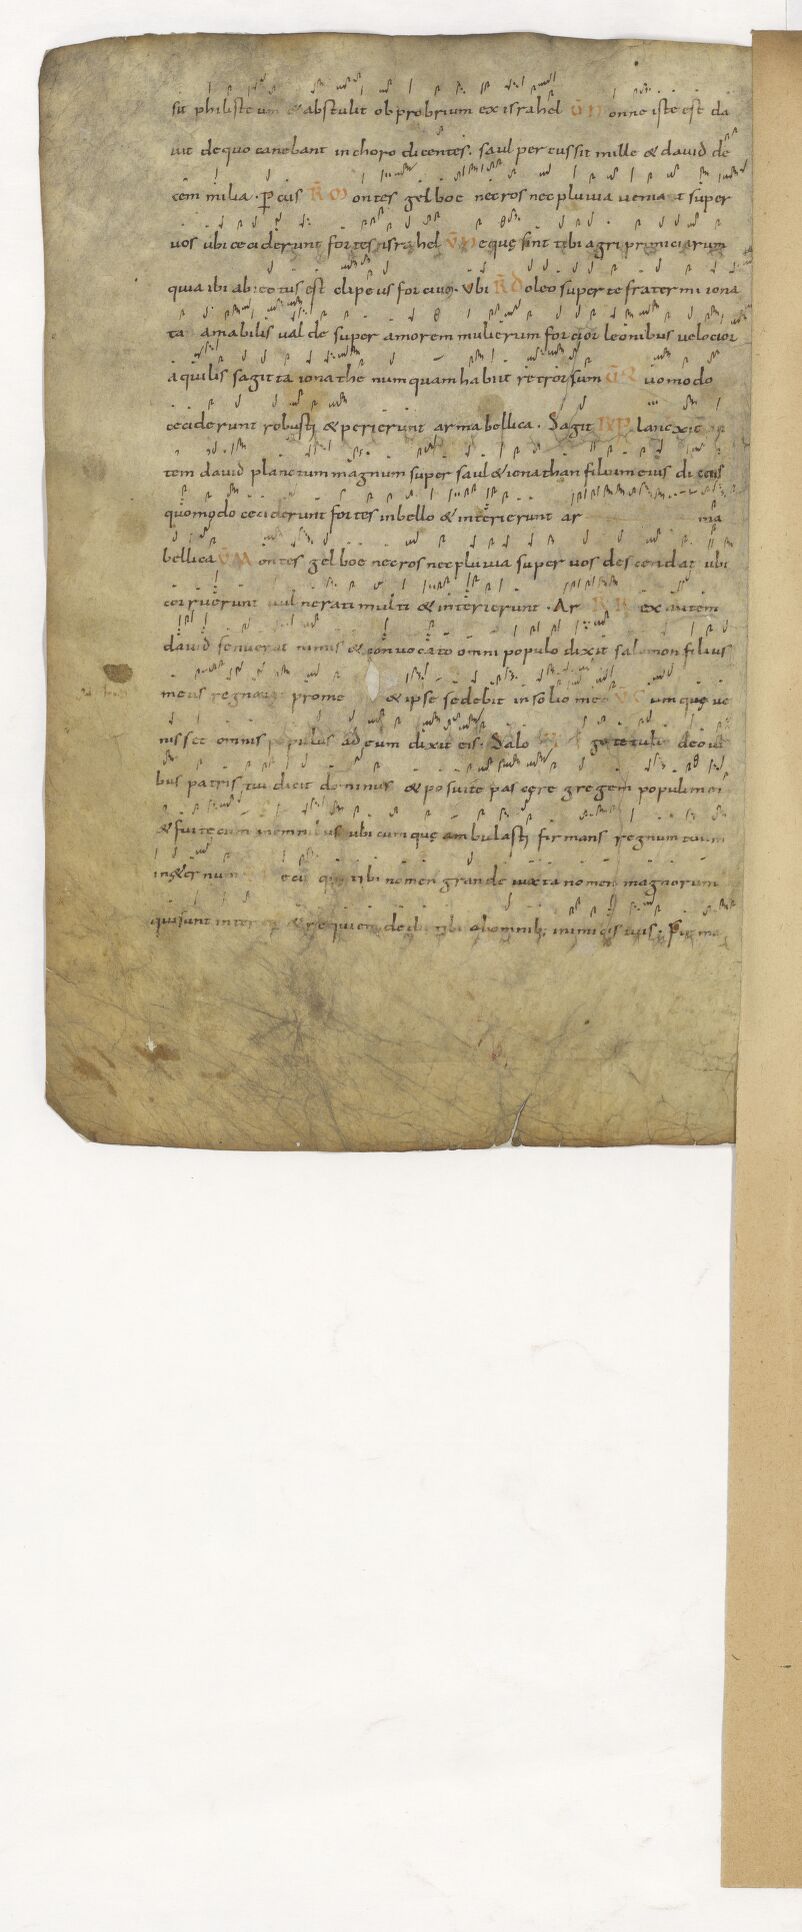 sit philisteum & abstulit obprobrium ex israhel V̄ Nonne iste est da
uit de quo canebant in choro dicentes. saul percussit mille & dauid de
cem milia. P̄cus R̄ Montes gelboe nec ros nec pluuia ueniat super
uos ubi ceciderunt fortes israhel V̄ Neque sint tibi agri primiciarum
quia ibi abiectus est clipeus forcium. Vbi R̄ Doleo super te frater mi iona
ta amabilis ualde super amorem mulierum forcior leonibus uelocior
aquilis sagitta ionathe numquam habiit retrorsum V̄ Quomodo
ceciderunt robusti & perierunt arma bellica. Sagit R̄ Planexit
tem dauid planctum magnum super saul & ionathan filium eius dicens
quomodo ceciderunt fortes in bello & interierunt ar ma
bellica V̄ Montes gelboe nec ros nec pluuia super uos descendat ubi
corruerunt uulnerati multi & interierunt. Ar R̄ Rex autem
dauid senuerat nimis & conuocato omni populo dixit salomon filius
meus regnabit pro me & ipse sedebit in solio meo V̄ Cumque ue
nisset omnis populus ad eum dixit eis. Salo R̄ Ego te tuli de oui
bus patris tui dicit dominus & posui te pascere gregem populi mei
& fui tecum in omnibus ubicumque ambulasti firmans regnum tuum
in&ernum eci que tibi nomen grande iuxta nomen magnorum
qui sunt in terra & requiem dedi tibi ab omnib; inimicis tuis. Firma